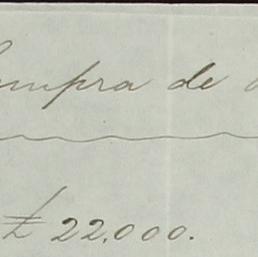 Compra de
£ 22.000.